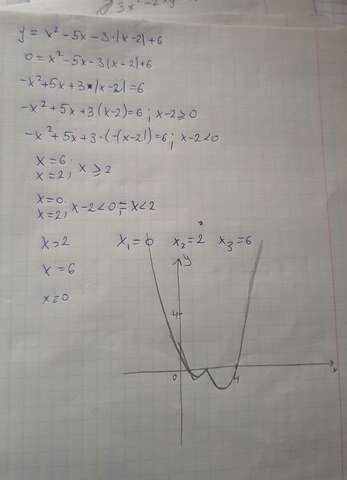 y = x² - 5x - 3·|x-2| + 6
0 = x² - 5x - 3|x-2| + 6
-x² + 5x + 3*|x-2| = 6
-x² + 5x + 3(x-2) = 6; x-2 ≥ 0
-x² + 5x + 3·(-(x-2)) = 6; x-2 < 0
x = 6
x = 2; x ≥ 2
x = 0
x = 2; x-2 < 0 = x < 2
x = 2
x = 6
x = 0
x₁ = 0 x₂ = 2 x₃ = 6
y
4
0
4
x